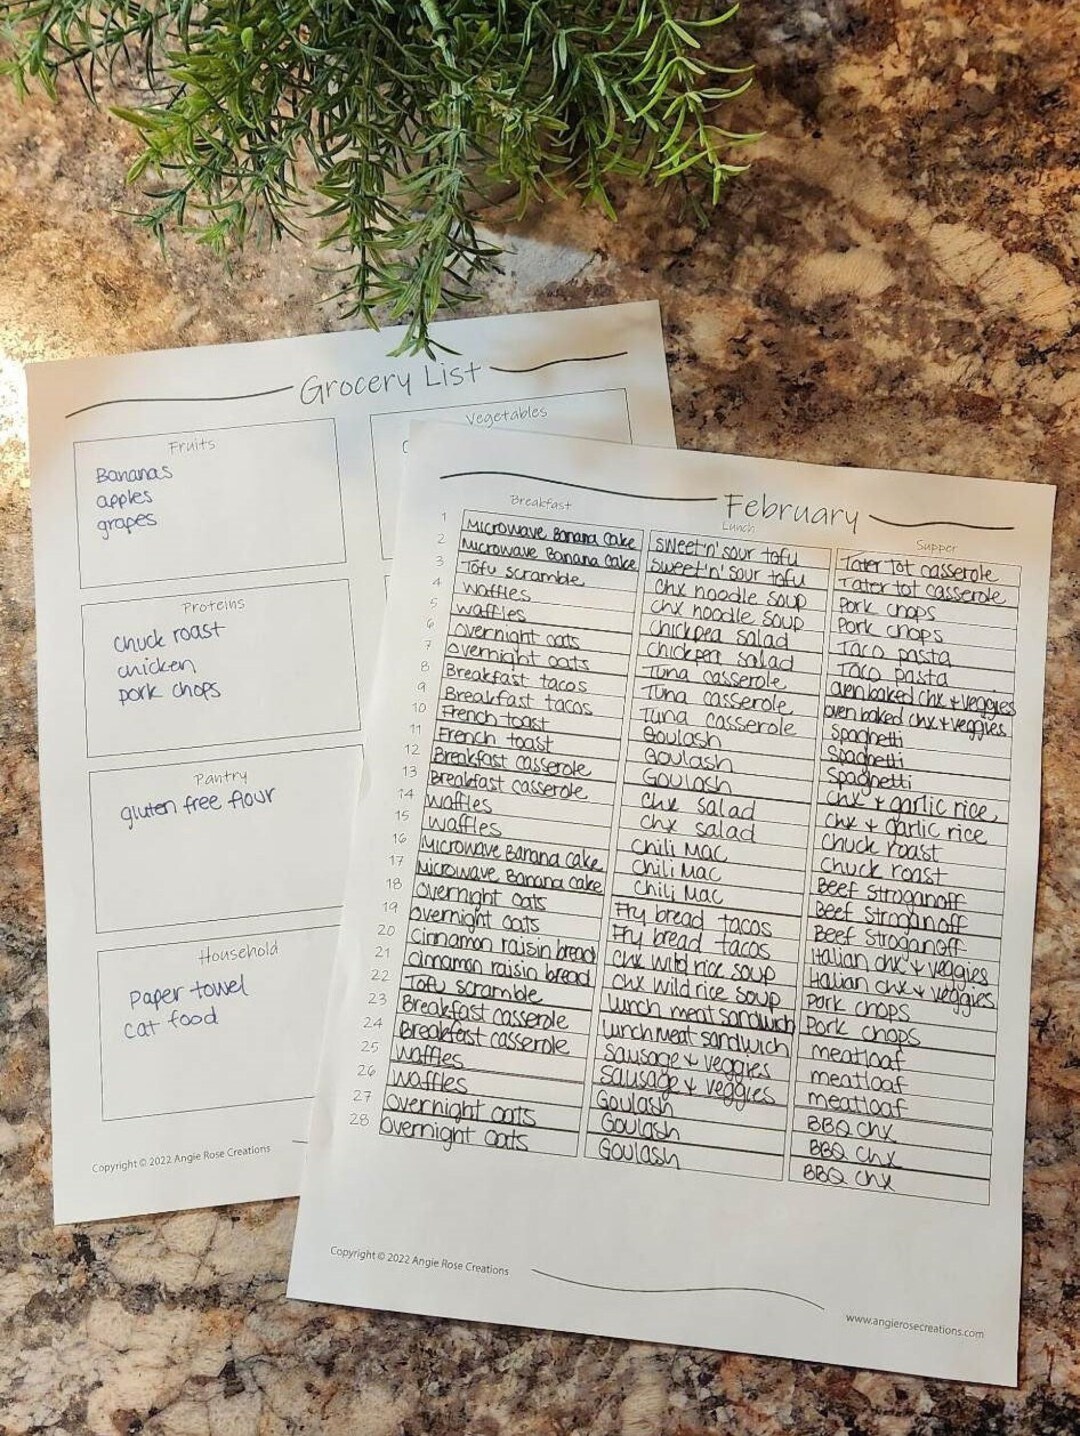 Grocery List
Fruits
Bananas
apples
grapes
Vegetables
Proteins
chuck roast
chicken
pork chops
Pantry
gluten free flour
Household
Paper towel
cat food
Copyright © 2022 Angie Rose Creations
February
Breakfast Lunch Supper
1 Microwave Banana Cake sweet'n'sour tofu Tater tot casserole
2 Microwave Banana Cake sweet'n'sour tofu Tater tot casserole
3 Tofu scramble chx noodle soup Pork chops
4 Waffles chx noodle soup Pork chops
5 waffles chickpea salad Taco pasta
6 overnight oats chickpea salad Taco pasta
7 overnight oats Tuna casserole oven baked chx + veggies
8 Breakfast tacos Tuna casserole oven baked chx + veggies
9 Breakfast tacos Tuna casserole Spaghetti
10 French toast Goulash Spaghetti
11 French toast Goulash Spaghetti
12 Breakfast casserole Goulash chx + garlic rice
13 Breakfast casserole chx salad chx + garlic rice
14 waffles chx salad Chuck roast
15 waffles Chili Mac Chuck roast
16 Microwave Banana Cake Chili Mac Beef Stroganoff
17 Microwave Banana Cake Chili Mac Beef Stroganoff
18 overnight oats Fry bread tacos Beef Stroganoff
19 overnight oats Fry bread tacos Italian chx + veggies
20 Cinnamon raisin bread chx wild rice soup Italian chx + veggies
21 cinnamon raisin bread chx wild rice soup Pork chops
22 Tofu scramble lunch meat sandwich Pork chops
23 Breakfast casserole lunch meat sandwich meatloaf
24 Breakfast casserole sausage + veggies meatloaf
25 Waffles sausage + veggies meatloaf
26 waffles Goulash BBQ chx
27 overnight oats Goulash BBQ chx
28 overnight oats Goulash BBQ chx
Copyright © 2022 Angie Rose Creations
www.angierosecreations.com